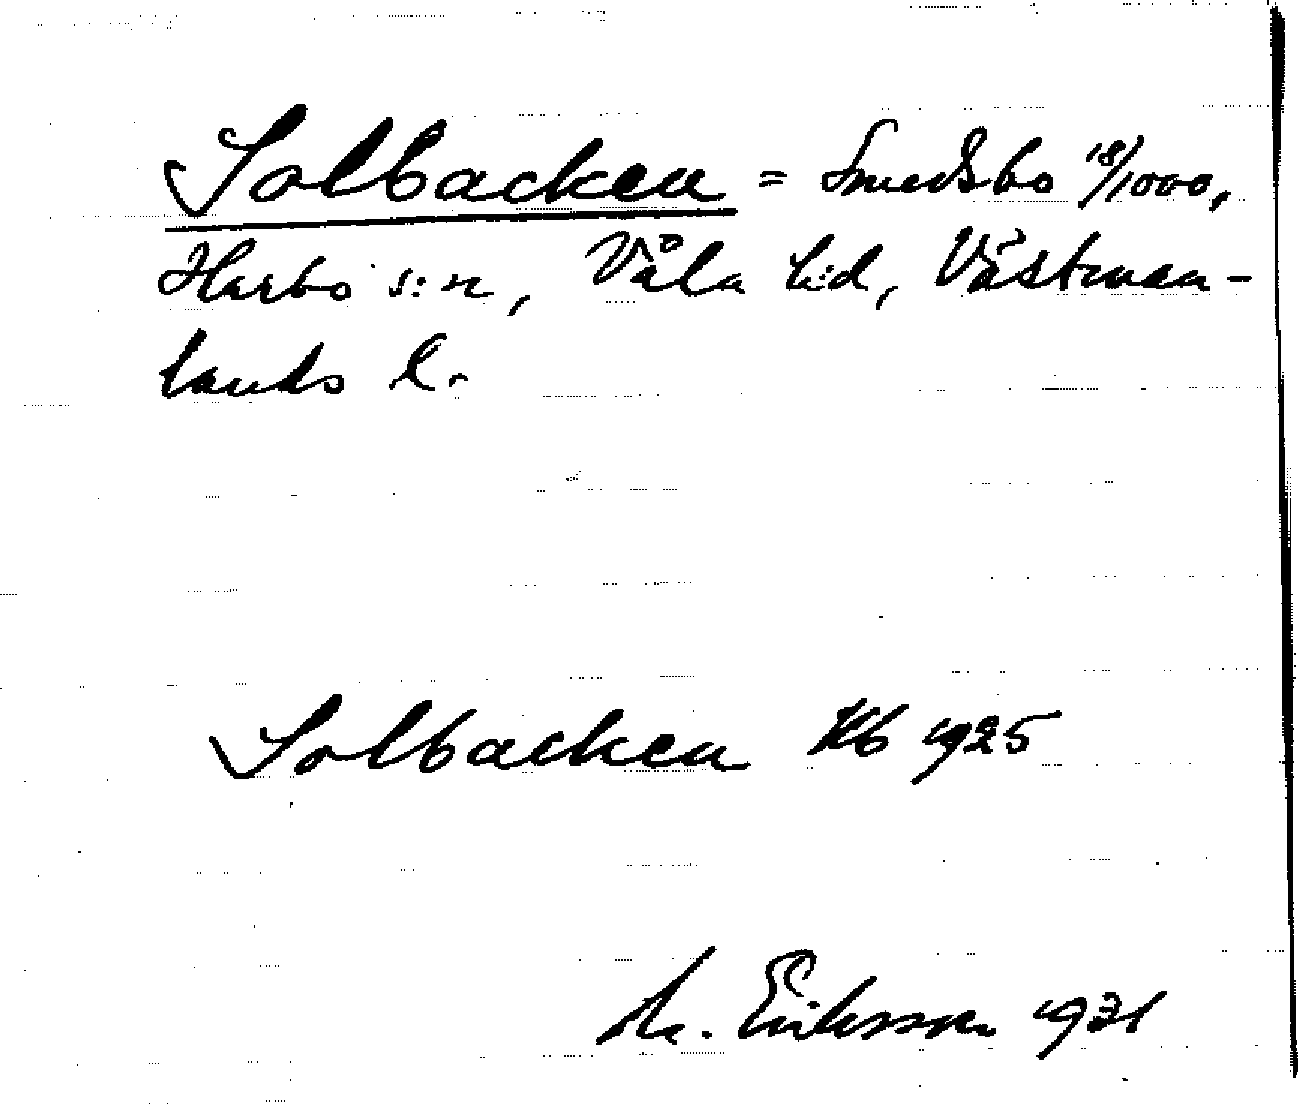 Solbacken = Smedsbo 18/1000,
Harbo s:n, Våla h:d, Västman-
lands l.
Solbacken Kb 1925
M. Eriksson 1931